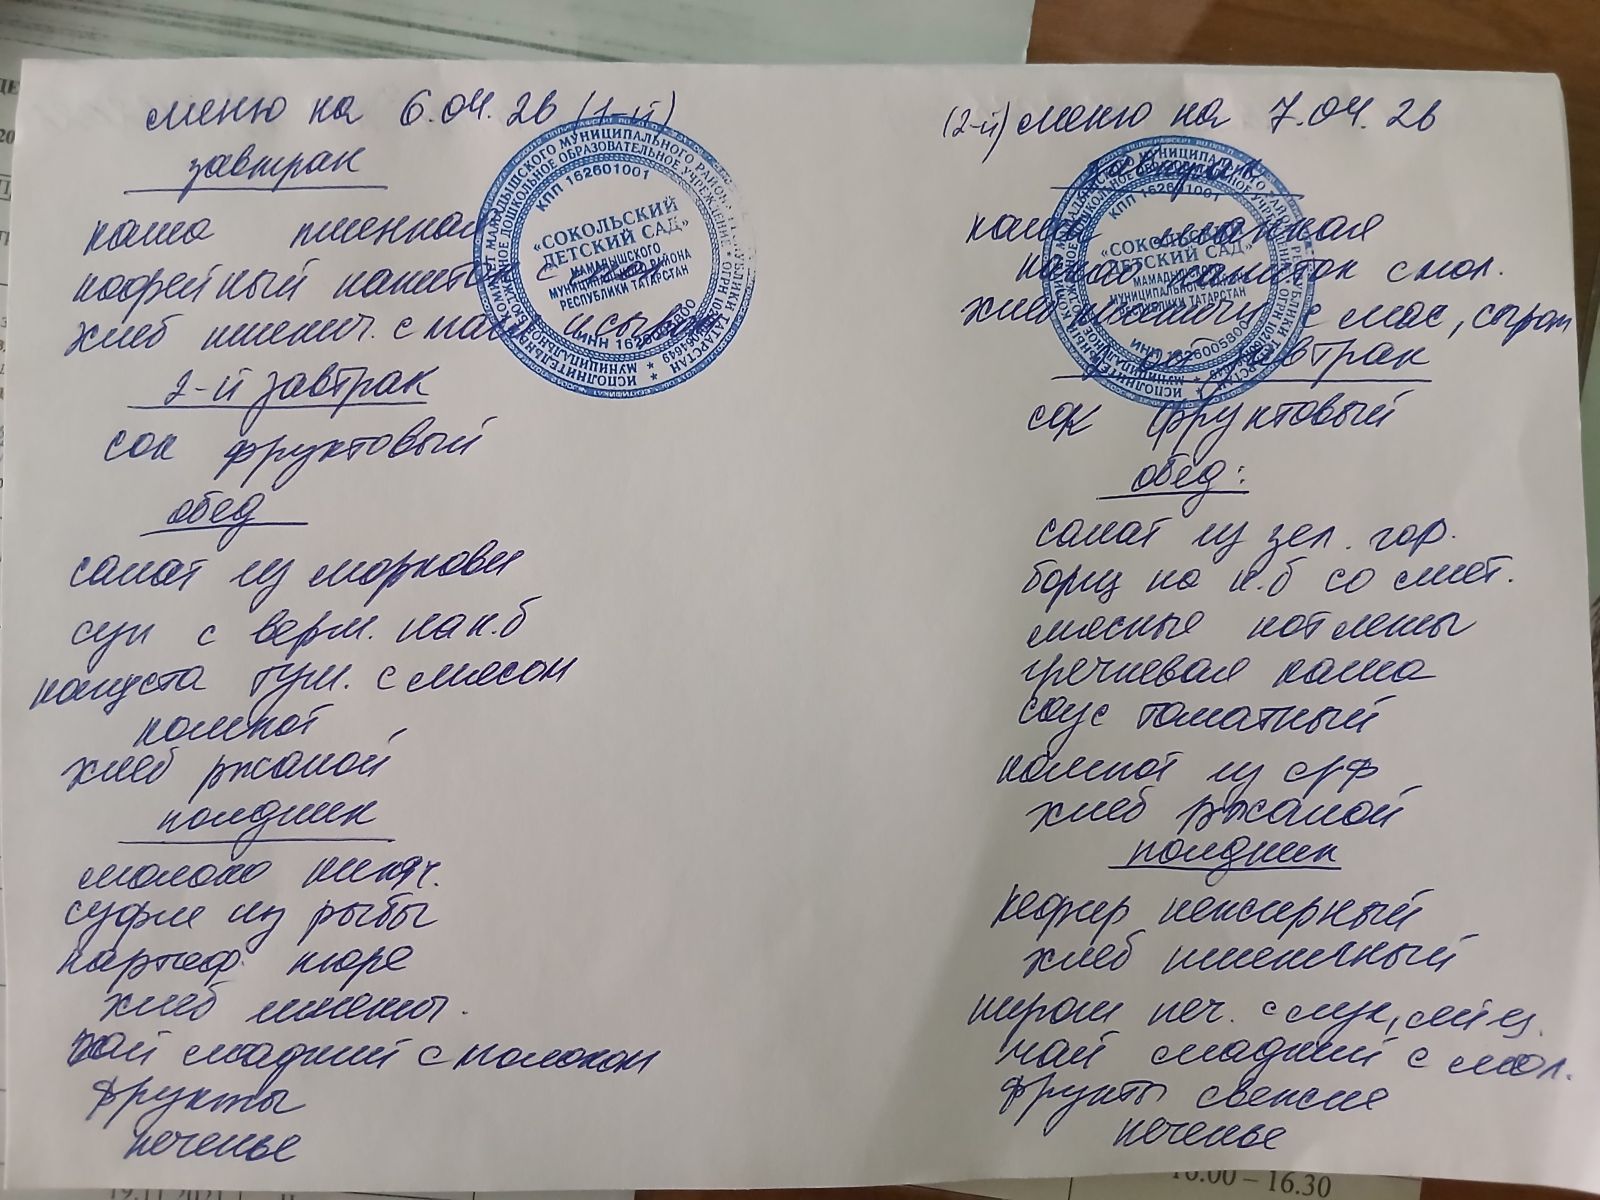 меню на 6.04.26 (1-й)
завтрак
каша пшенная
кофейный напиток с мол.
хлеб пшенич. с мас. и сыром
2-й завтрак
сок фруктовый
обед
салат из моркови
суп с верм. на к.б
капуста туш. с мясом
компот
хлеб ржаной
полдник
молоко кипяч.
суфле из рыбы
картоф. пюре
хлеб пшенич.
чай сладкий с молоком
фрукты
печенье
(2-й) меню на 7.04.26
завтрак
каша манная
какао напиток с мол.
хлеб пшенич. с мас, сыром
2-й завтрак
сок фруктовый
обед:
салат из зел. гор.
борщ на к.б со смет.
мясные котлеты
гречневая каша
соус томатный
компот из с/ф
хлеб ржаной
полдник
кефир нежирный
хлеб пшеничный
пирож печ. с лук, яйц.
чай сладкий с мол.
фрукты свежие
печенье
КПП 162601001
«СОКОЛЬСКИЙ
ДЕТСКИЙ САД»
МАМАДЫШСКОГО
МУНИЦИПАЛЬНОГО РАЙОНА
РЕСПУБЛИКИ ТАТАРСТАН
КПП 162601001
«СОКОЛЬСКИЙ
ДЕТСКИЙ САД»
МАМАДЫШСКОГО
МУНИЦИПАЛЬНОГО РАЙОНА
РЕСПУБЛИКИ ТАТАРСТАН
19.11.2021
16.00 – 16.30